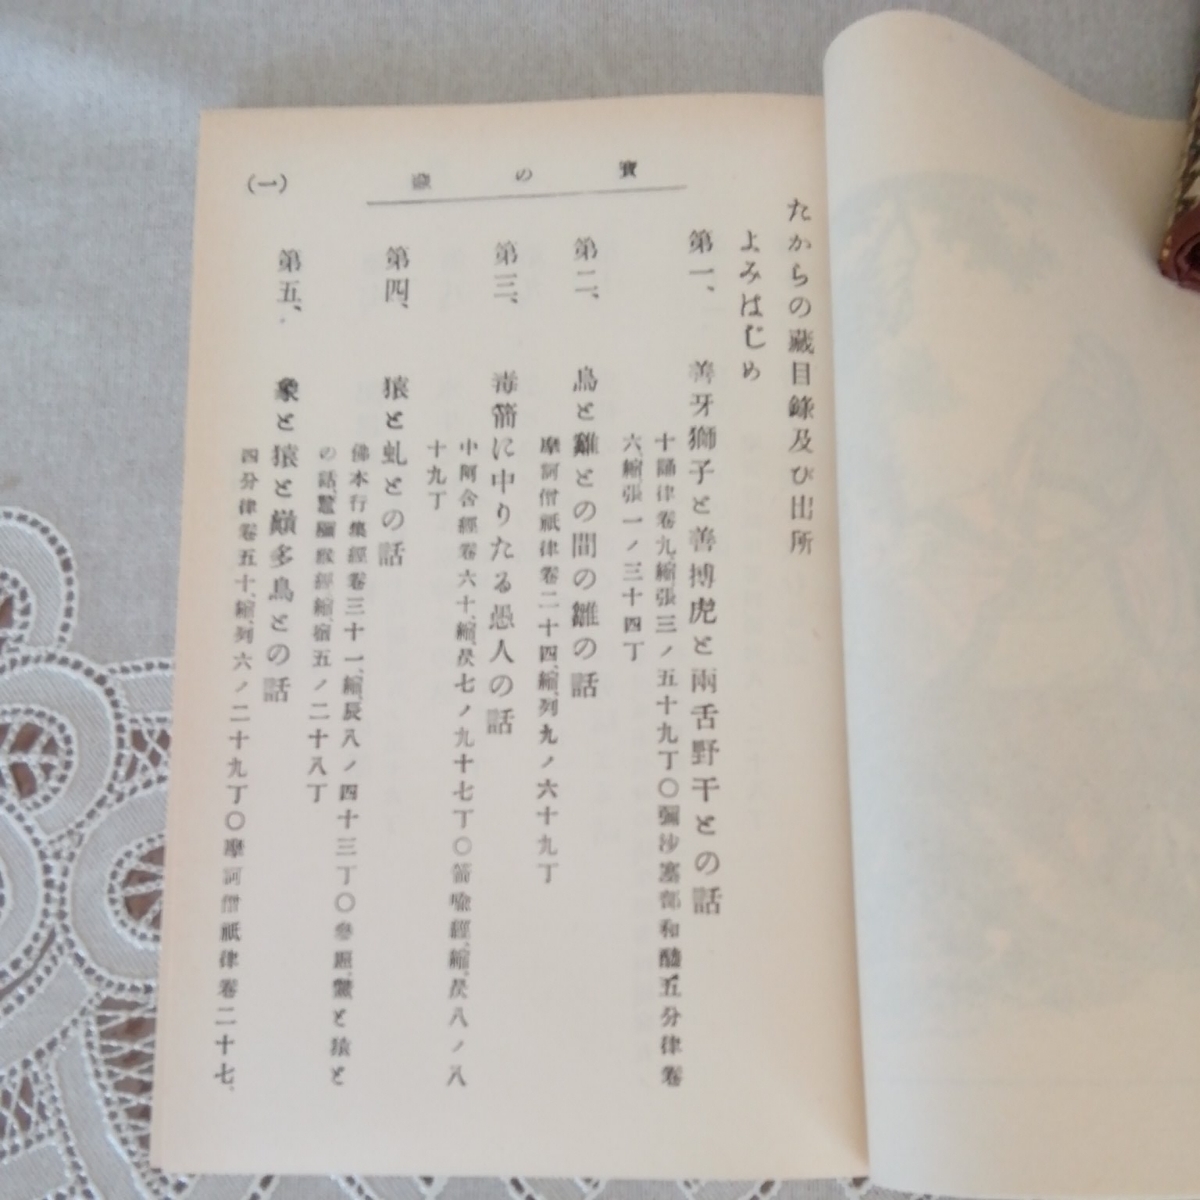 寶の藏
(一)
たからの藏目錄及び出所
よみはじめ
第一、 善牙獅子と善搏虎と兩舌野干との話
十誦律卷九、縮、張三ノ五十九丁〇彌沙塞部和醯五分律卷
六、縮、張一ノ三十四丁
第二、 烏と雞との間の雛の話
摩訶僧祇律卷二十四、縮、列九ノ六十九丁
第三、 毒箭に中りたる愚人の話
中阿含經卷六十、縮、昃七ノ九十七丁〇箭喩經、縮、昃八ノ八
十九丁
第四、 猿と虬との話
佛本行集經卷三十一、縮、辰八ノ四十三丁〇參照、鼈と猿と
の話、鼈獼猴經、縮、宿五ノ二十八丁
第五、 象と猿と巓多鳥との話
四分律卷五十、縮、列六ノ二十九丁〇摩訶僧祇律卷二十七、